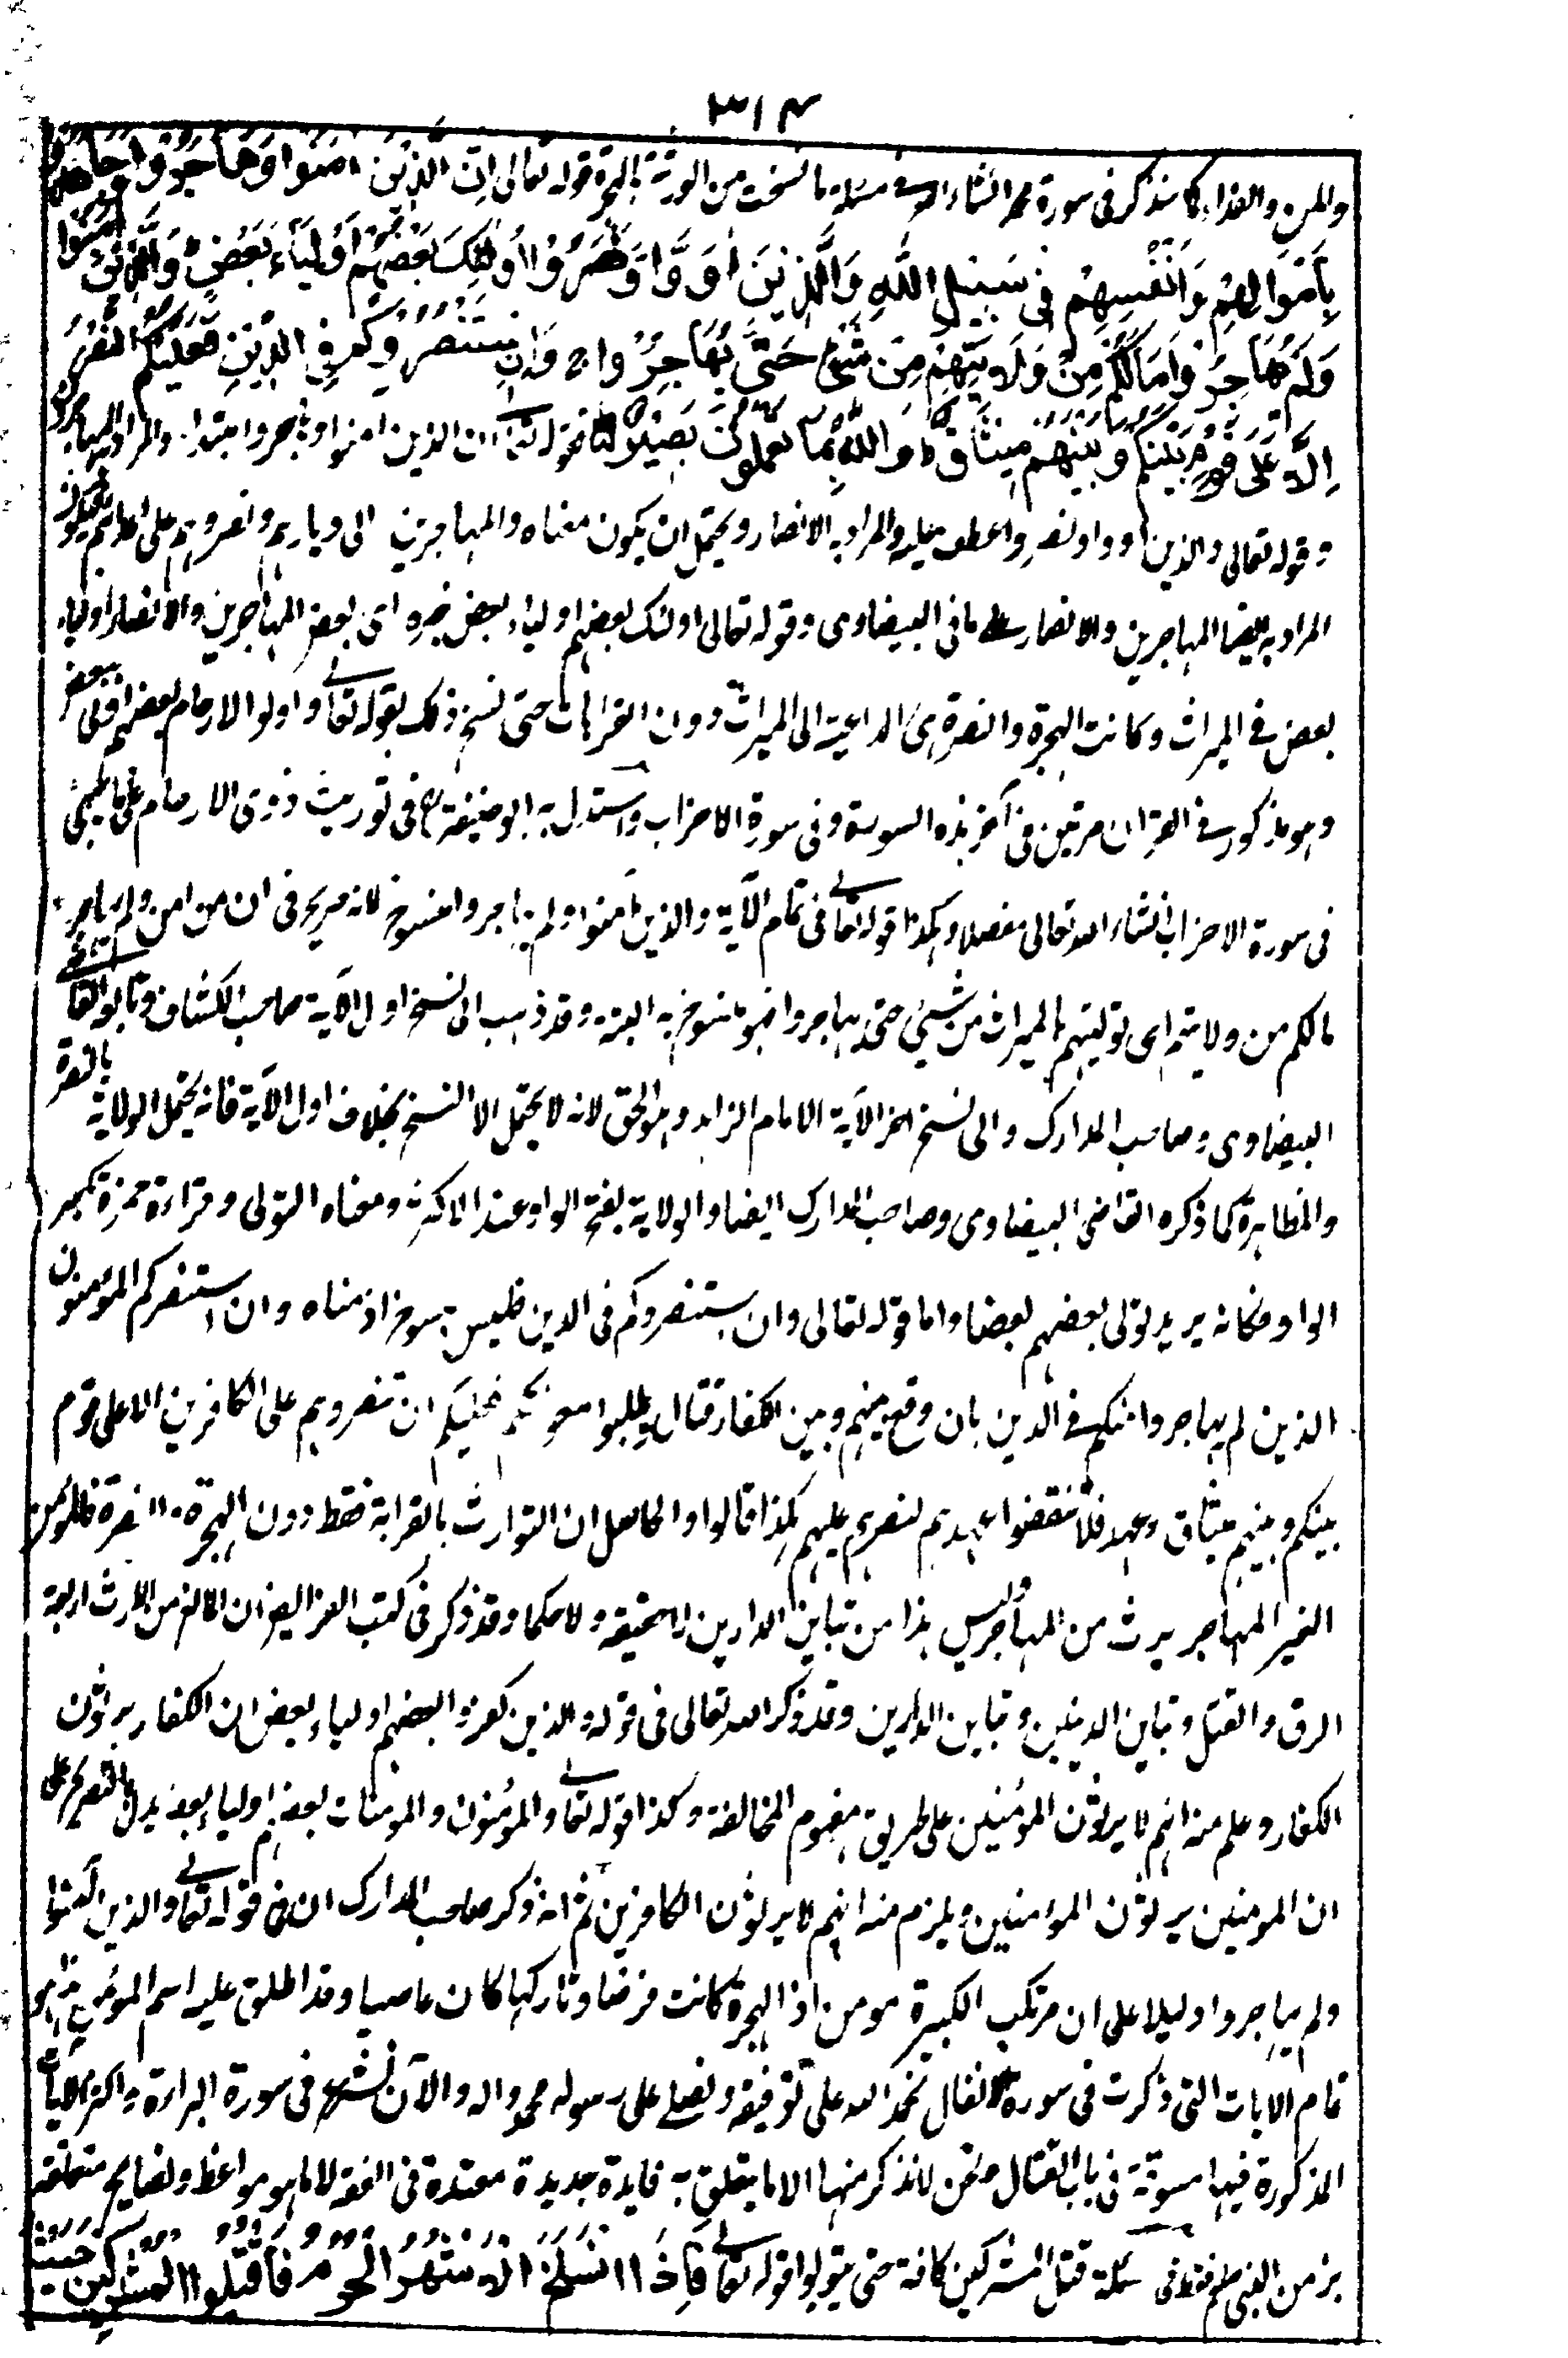 ٣١٤
والمن والفداء كما سنذكر فى سورة محمد انشاء الله فى مسئلة ما نسخت من الوراثة بالهجرة قوله تعالى اِنَّ الَّذِيْنَ اٰمَنُوْا وَهَاجَرُوْا وَجَاهَدُوْا
بِاَمْوَالِهِمْ وَاَنْفُسِهِمْ فِىْ سَبِيْلِ اللّٰهِ وَالَّذِيْنَ اٰوَوْا وَّنَصَرُوْا اُولٰٓئِكَ بَعْضُهُمْ اَوْلِيَآءُ بَعْضٍ ط وَالَّذِيْنَ اٰمَنُوْا
وَلَمْ يُهَاجِرُوْا مَا لَكُمْ مِنْ وَّلَايَتِهِمْ مِنْ شَىْءٍ حَتّٰى يُهَاجِرُوْا ج وَاِنِ اسْتَنْصَرُوْكُمْ فِى الدِّيْنِ فَعَلَيْكُمُ النَّصْرُ
اِلَّا عَلٰى قَوْمٍ بَيْنَكُمْ وَبَيْنَهُمْ مِيْثَاقٌ ط وَاللّٰهُ بِمَا تَعْمَلُوْنَ بَصِيْرٌ فقوله تعالى ان الذين امنوا وهاجروا مبتدا والمراد به المهاجرون
وقوله تعالى والذين اووا ونصروا عطف عليه والمراد به الانصار ويحتمل ان يكون معناه والمهاجرين الى ديارهم ونصروهم على اعدائهم فيكون
المراد به ايضا المهاجرين والانصار على ما فى البيضاوى وقوله تعالى اولئك بعضهم اولياء بعض خبره اى بعض المهاجرين والانصار اولياء
بعض فى الميراث وكانت الهجرة والنصرة هى الداعية الى الميراث دون القرابات حتى نسخ ذلك بقوله تعالى واولوا الارحام بعضهم اولى ببعض
وهو مذكور فى القران مرتين فى آخر هذه السورة وفى سورة الاحزاب واستدل به ابو حنيفة رح فى توريث ذوى الارحام على ما يجىء
فى سورة الاحزاب انشاء الله تعالى مفصلا وهكذا قوله تعالى فى تمام الآية والذين آمنوا ولم يهاجروا منسوخ لانه صريح فى ان من امن ولم يهاجر
مالكم من ولايتهم اى توليتهم بالميراث من شىء حتى يهاجروا فهو منسوخ به البتة وقد ذهب الى نسخ اول الآية صاحب الكشاف وتابعه القاضى
البيضاوى وصاحب المدارك والى نسخ اخر الآية الامام الزاهد وهو الحق لانه لا يحتمل الا النسخ بخلاف اول الآية فانه يحتمل الولاية بالنصرة
والمظاهرة كما ذكره القاضى البيضاوى وصاحب المدارك ايضا والولاية بفتح الواو عند الاكثر ومعناه التولى وقراءة حمزة بكسر
الواو فكانه يريد تولى بعضهم بعضا واما قوله تعالى وان استنصروكم فى الدين فليس بمنسوخ اذ معناه وان استنصركم المؤمنون
الذين لم يهاجروا منكم فى الدين بان وقع بينهم وبين الكفار قتال وطلبوا معونتكم فعليكم ان تنصروهم على الكافرين الا على قوم
بينكم وبينهم ميثاق وعهد فلا تنقضوا عهدهم لنصرهم عليهم هكذا قالوا والحاصل ان التوارث بالقرابة فقط دون الهجرة والنصرة فالمؤمن
الغير المهاجر يرث من المهاجر وليس هذا من تباين الدارين لا حقيقة ولا حكما وقد ذكر فى كتب الفرائض ان المانع من الارث اربعة
الرق والقتل وتباين الدينين وتباين الدارين وقد ذكر الله تعالى فى قوله والذين كفروا بعضهم اولياء بعض ان الكفار يرثون
الكفار وعلم منه انهم لا يرثون المؤمنين على طريق مفهوم المخالفة وكذا قوله تعالى والمؤمنون والمومنات بعضهم اولياء بعض يدل بالتصريح على
ان المومنين يرثون المؤمنين ويلزم منه انهم لا يرثون الكافرين ثم انه ذكر صاحب المدارك ان فى قوله تعالى والذين آمنوا
ولم يهاجروا دليلا على ان مرتكب الكبيرة مومن اذ الهجرة كانت فرضا وتاركها كان عاصيا وقد اطلق عليه اسم المؤمن هذا هو
تمام الايات التى ذكرت فى سورة الانفال نحمد الله على توفيقه ونصلى على رسوله محمد واله والآن نشرع فى سورة البراءة واكثر الآيات
المذكورة فيها مسوقة فى باب القتال ونحن لا نذكر منها الا ما يتعلق به فايدة جديدة معتدة فى الفقه لا ما هو مواعظ ونصايح متعلقة
بزمن النبى صلعم فقط فى مسئلة قتل المشركين كافة حتى يتوبوا قوله تعالى فَاِذَا انْسَلَخَ الْاَشْهُرُ الْحُرُمُ فَاقْتُلُوا الْمُشْرِكِيْنَ حَيْثُ